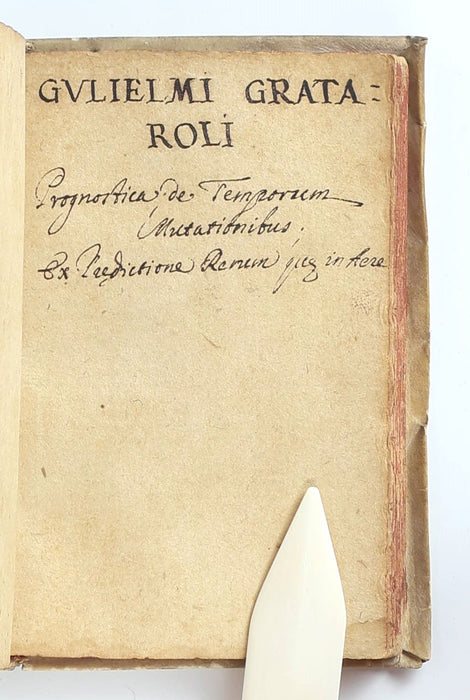 GVLIELMI GRATA=
ROLI
Prognostica de Temporum
Mutationibus.
Ex Prędictione Rerum quę in Aere